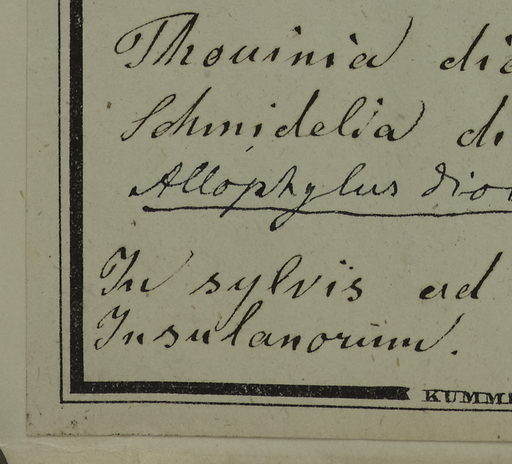 Thouinia dio
Schmidelia di
Allophylus dioi
In sylvis ad
Insulanorum.
KUMM